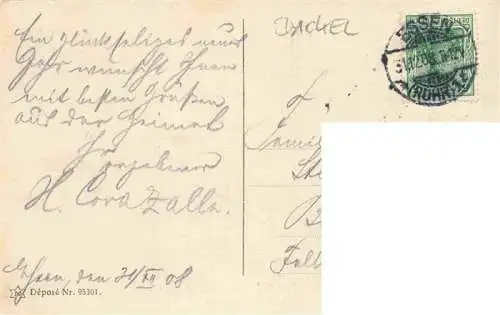 Ein glückseliges neues
Jahr wünscht Ihnen
mit besten Grüßen
aus der Heimat
Ihr
ergebener
H. Corazalla.
Essen, den 31/XII 08
Déposé Nr. 95301.
DACKEL
ESSEN
(RUHR)
Famil